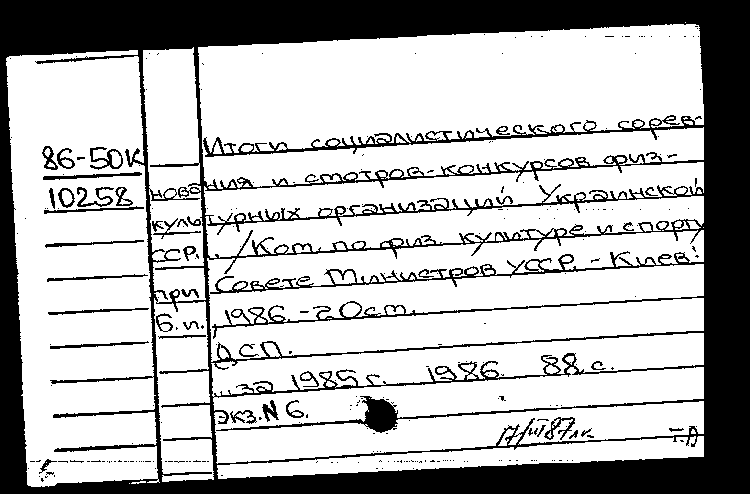 Итоги социалистического сорев-
86-50К
нования и смотров-конкурсов физ-
10258
культурных организаций Украинской
ССР. /Ком. по физ. культуре и спорту
при Совете Министров УССР. - Киев:
Б. и., 1986. - 20 ст.
ДСП.
...за 1985 г. 1986. 88 с.
экз. N 6.
17/III 87